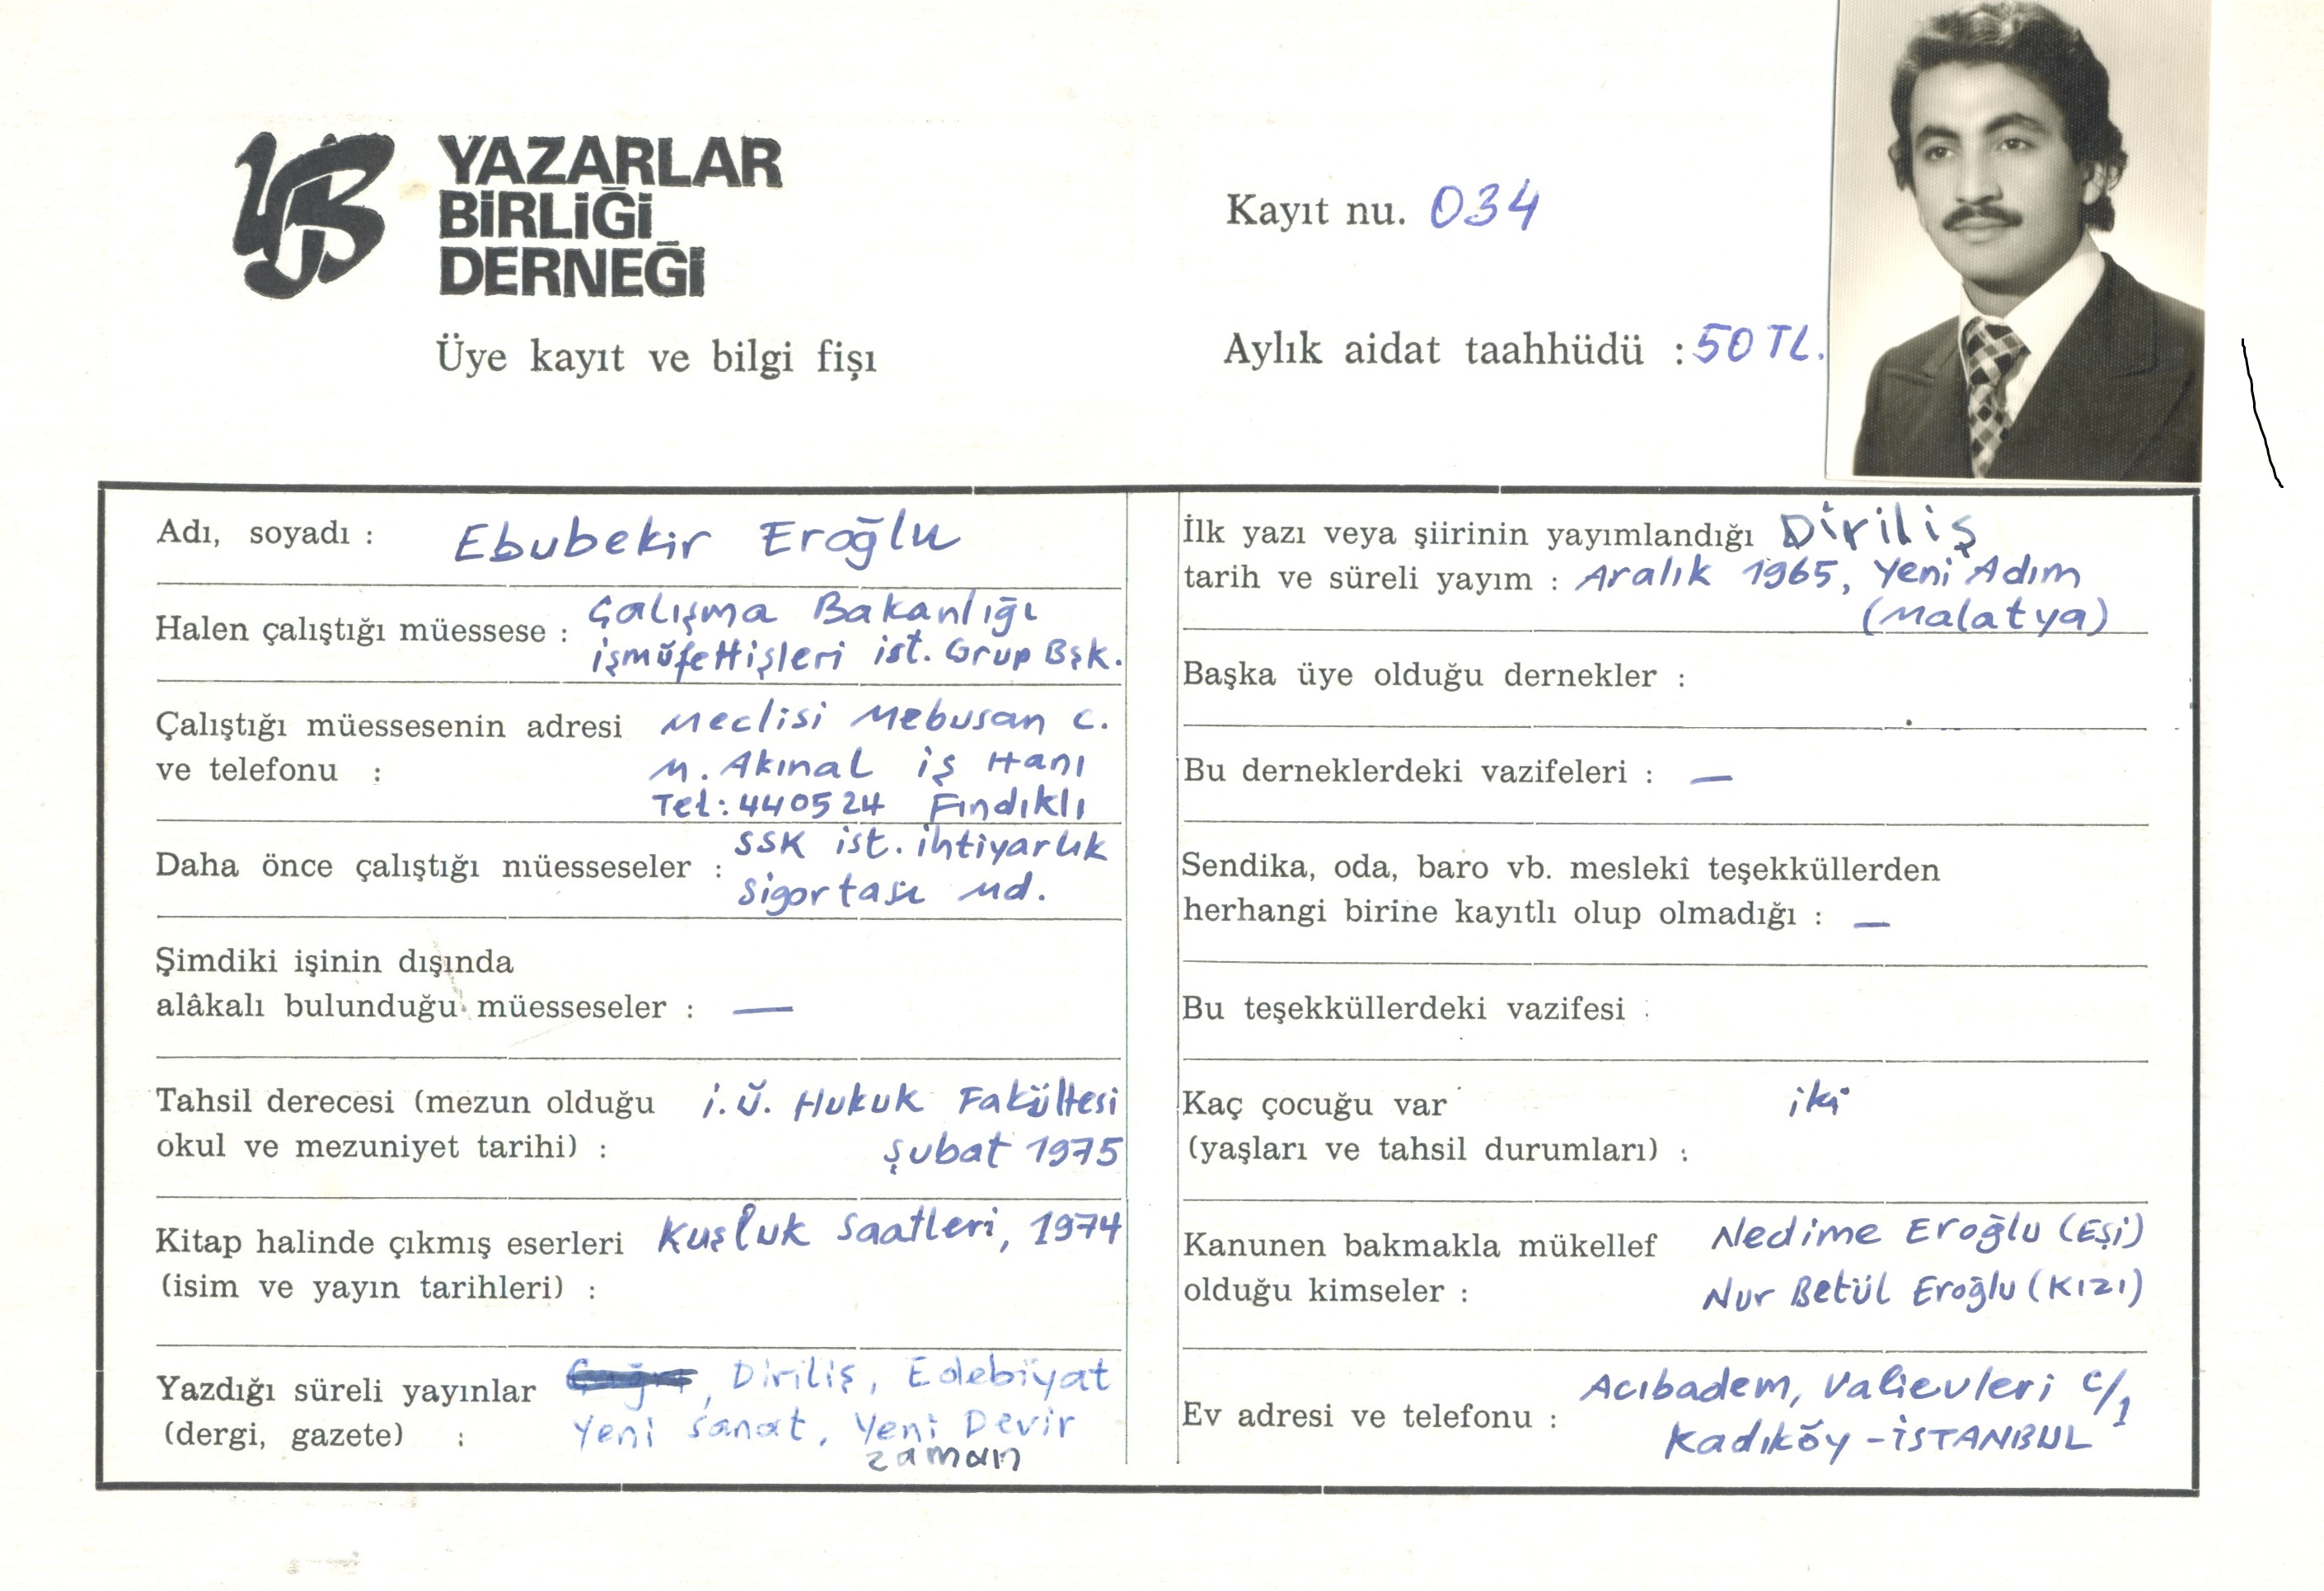 YAZARLAR
BİRLİĞİ
DERNEĞİ
Üye kayıt ve bilgi fişi
Kayıt nu. 034
Aylık aidat taahhüdü : 50 TL.
Adı, soyadı : Ebubekir Eroğlu
Halen çalıştığı müessese : Çalışma Bakanlığı
işmüfettişleri ist. Grup Bşk.
Çalıştığı müessesenin adresi Meclisi Mebusan C.
ve telefonu : M. Akınal iş Hanı
Tel: 440524 Fındıklı
Daha önce çalıştığı müesseseler : SSK ist. ihtiyarlık
Sigortası Md.
Şimdiki işinin dışında
alâkalı bulunduğu müesseseler : —
Tahsil derecesi (mezun olduğu i.Ü. Hukuk Fakültesi
okul ve mezuniyet tarihi) : Şubat 1975
Kitap halinde çıkmış eserleri Kuşluk Saatleri, 1974
(isim ve yayın tarihleri) :
Yazdığı süreli yayınlar , Diriliş, Edebiyat
(dergi, gazete) : Yeni Sanat, Yeni Devir
zaman
İlk yazı veya şiirinin yayımlandığı Diriliş
tarih ve süreli yayım : Aralık 1965, Yeni Adım
(Malatya)
Başka üye olduğu dernekler :
Bu derneklerdeki vazifeleri : —
Sendika, oda, baro vb. meslekî teşekküllerden
herhangi birine kayıtlı olup olmadığı : —
Bu teşekküllerdeki vazifesi :
Kaç çocuğu var iki
(yaşları ve tahsil durumları) :
Kanunen bakmakla mükellef Nedime Eroğlu (Eşi)
olduğu kimseler : Nur Betül Eroğlu (Kızı)
Ev adresi ve telefonu : Acıbadem, Valievleri C/1
Kadıköy - İSTANBUL